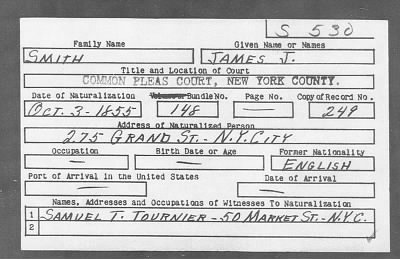 S 530
Family Name Given Name or Names
SMITH JAMES J.
Title and Location of Court
COMMON PLEAS COURT, NEW YORK COUNTY.
Date of Naturalization Volume or Bundle No. Page No. Copy of Record No.
OCT. 3-1855 148 — 249
Address of Naturalized Person
275 GRAND ST. - N.Y. CITY
Occupation Birth Date or Age Former Nationality
— — ENGLISH
Port of Arrival in the United States Date of Arrival
— —
Names, Addresses and Occupations of Witnesses To Naturalization
1 SAMUEL T. TOURNIER - 50 MARKET ST. - N.Y.C.
2